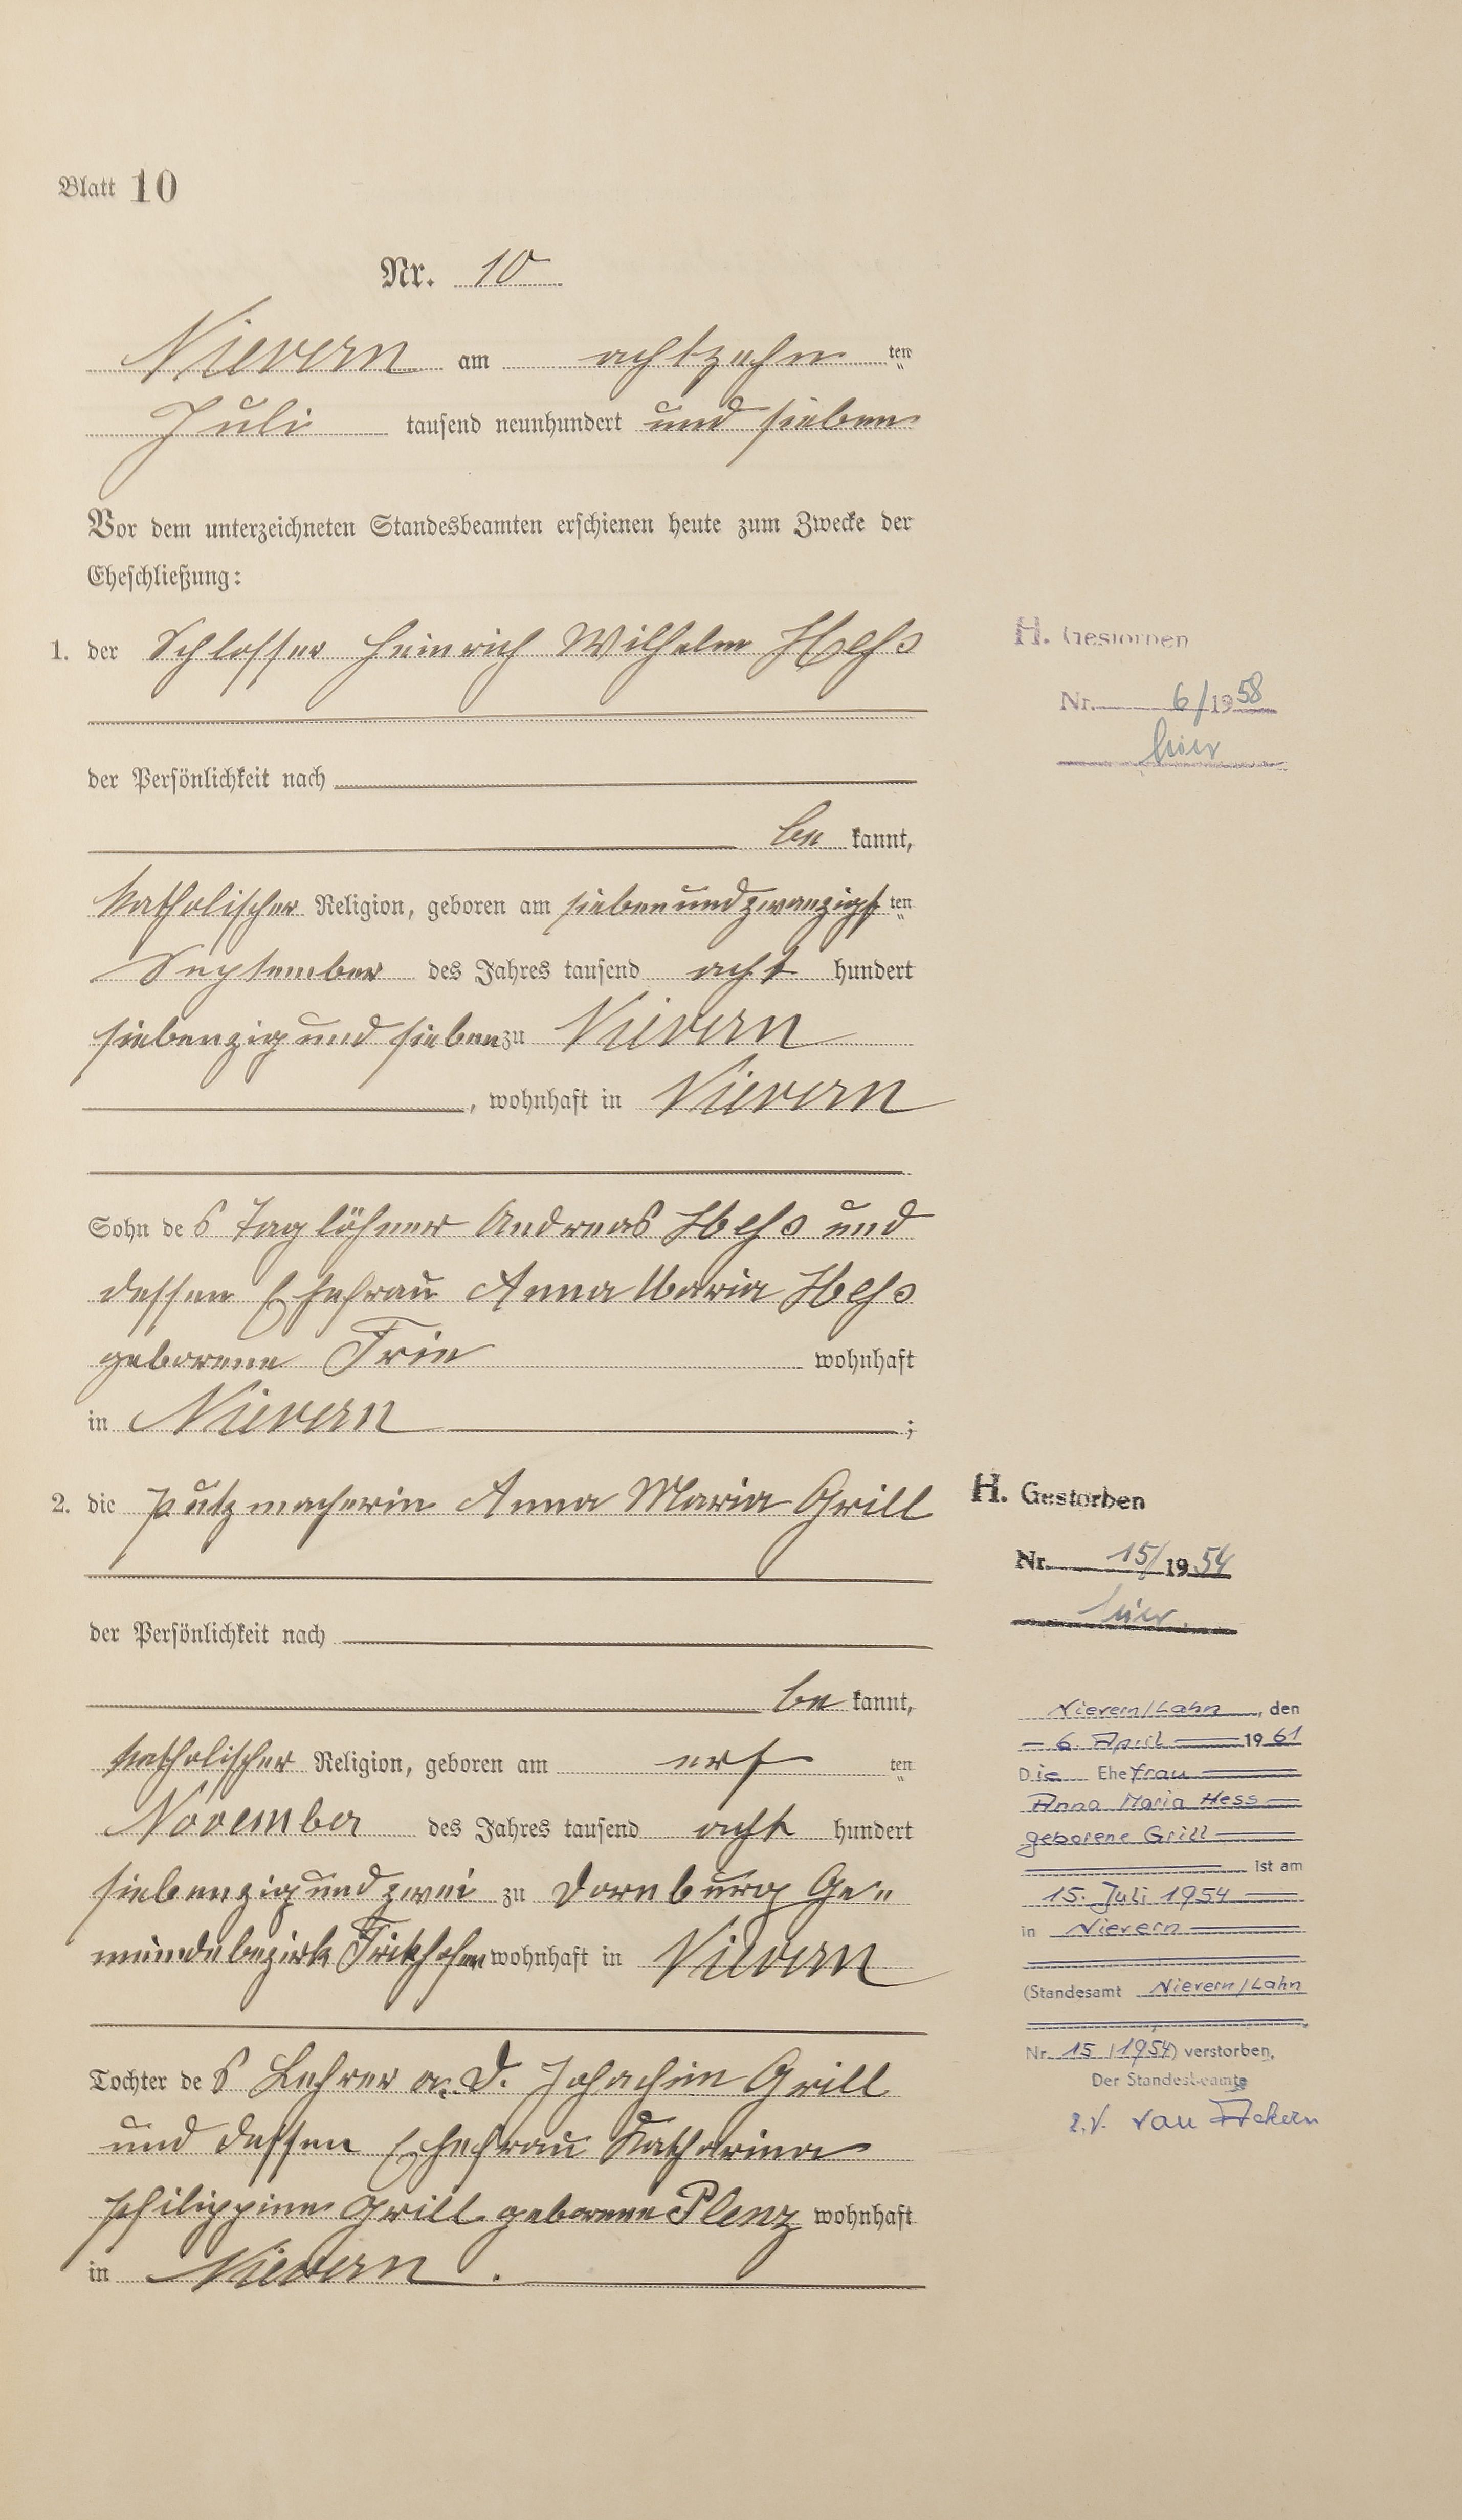 Blatt 10
Nr. 10
Nievern am achtzehn ten
Juli tausend neunhundert und sieben
Vor dem unterzeichneten Standesbeamten erschienen heute zum Zwecke der
Eheschließung:
1. der Schlosser Heinrich Wilhelm Heß
der Persönlichkeit nach
be kannt,
katholischer Religion, geboren am siebenundzwanzigst ten
September des Jahres tausend acht hundert
siebenzig und sieben zu Nievern
, wohnhaft in Nievern
Sohn des Taglöhner Andreas Heß und
dessen Ehefrau Anna Maria Heß
geborene Frin wohnhaft
in Nievern ;
2. die Putzmacherin Anna Maria Grill
der Persönlichkeit nach
be kannt,
katholischer Religion, geboren am erst ten
November des Jahres tausend acht hundert
siebenzig und zwei zu Dornburg Ge-
meindebezirk Frickhofen wohnhaft in Nievern
Tochter des Lehrer a. D. Johachim Grill
und dessen Ehefrau Katharina
Philippine Grill geborene Plenz wohnhaft
in Nievern.
H. Gestorben
Nr. 6/1958
hier
H. Gestorben
Nr. 15/1954
hier
Nievern/Lahn, den
6. April 1961
Die Ehefrau
Anna Maria Hess
geborene Grill
ist am
15. Juli 1954
in Nievern
(Standesamt Nievern/Lahn
Nr. 15/1954) verstorben.
Der Standesbeamte
van